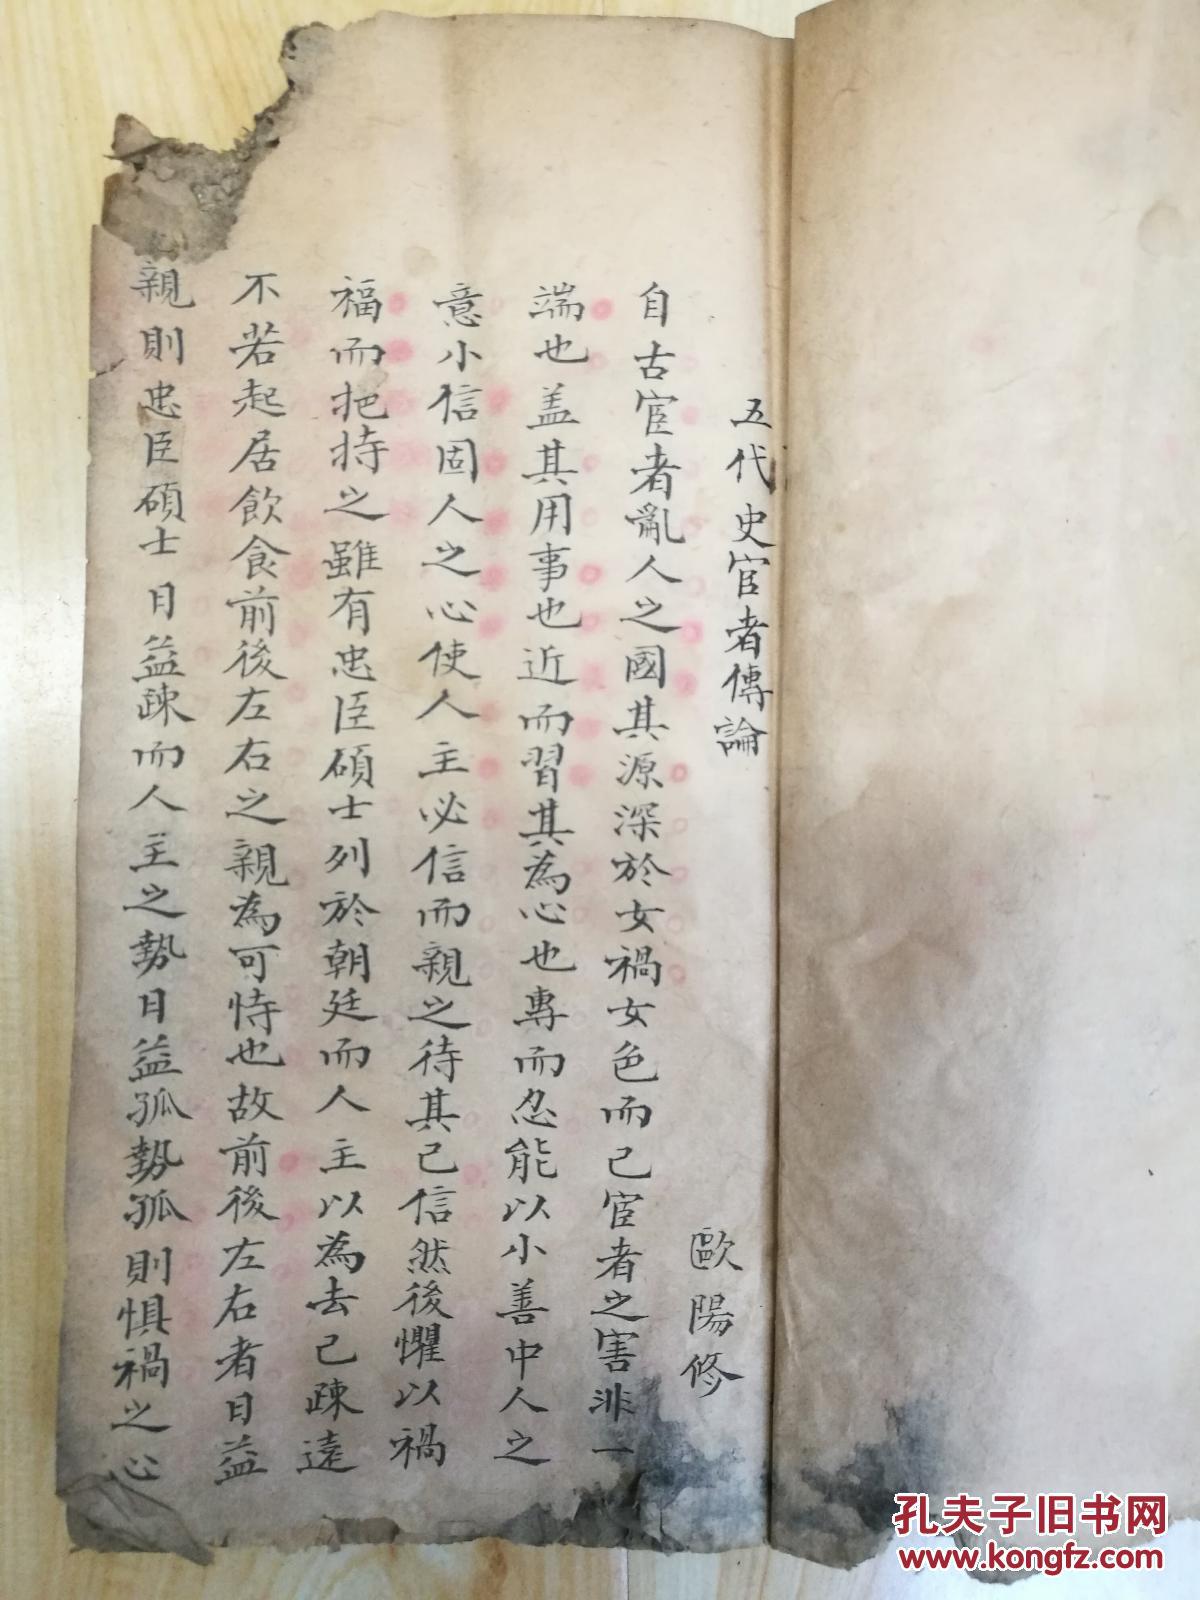 五代史宦者傳論
歐陽修
自古宦者亂人之國其源深於女禍女色而已宦者之害非一
端也盖其用事也近而習其為心也專而忍能以小善中人之
意小信固人之心使人主必信而親之待其已信然後懼以禍
福而把持之雖有忠臣碩士列於朝廷而人主以為去己疎遠
不若起居飲食前後左右之親為可恃也故前後左右者日益
親則忠臣碩士日益疎而人主之勢日益孤勢孤則懼禍之心
孔夫子旧书网
www.kongfz.com